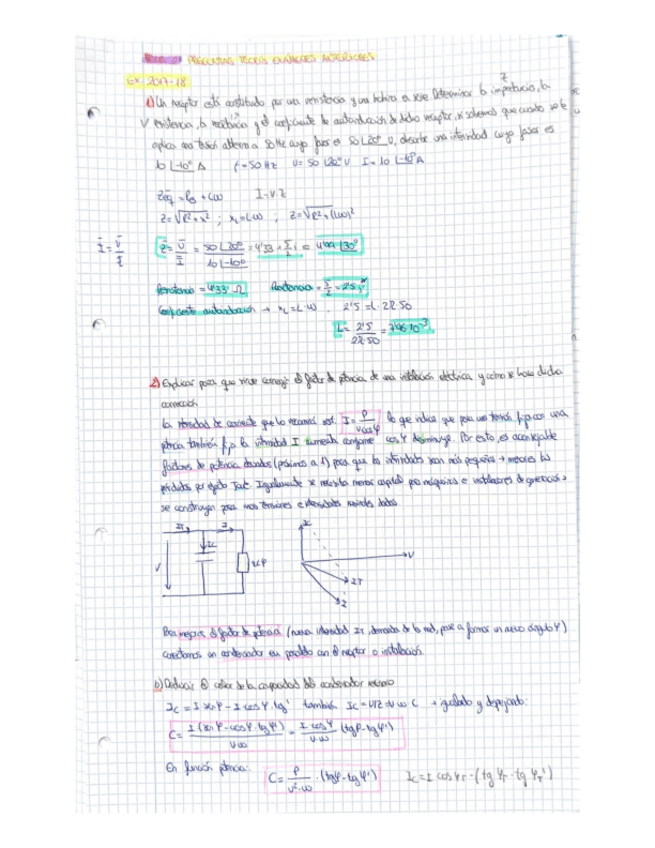 PREGUNTAS TEORÍA EXÁMENES ANTERIORES
Ex-2017-18
1) Un receptor está constituido por una resistencia y una bobina en serie. Determinar la impedancia, la
Z
resistencia, la reactancia y el coeficiente de autoinducción de dicho receptor, si sabemos que cuando se le
aplica una tensión alterna a 50Hz cuyo fasor es 50∟20° V, absorbe una intensidad cuyo fasor es
10∟-10° A f=50HZ U=50∟20° V I=10∟-10° A
I=V·Z
Z=√R²+X² ; XL=Lω ; Z=√R²+(Lω)²
Ī = V̄/Z̄
Z̄ = Ū/Ī = 50∟20°/10∟-10° = 4'33 + 5/2 i = 4'99∟30°
Resistencia = 4'33 Ω Reactancia = 5/2 = 2'5
Coeficiente autoinducción → XL=L·ω 2'5=L·2π·50
L = 2'5/2π·50 = 7'96·10⁻³
2) Explicar para que sirve corregir el factor de potencia de una instalación eléctrica y cómo se hace dicha
corrección
La intensidad de corriente que la recorrerá será I = P/Vcosφ lo que indica que para una tensión fija con una
potencia también fija la intensidad I aumenta conforme cosφ disminuye. Por esto, es aconsejable
factores de potencia elevados (próximos a 1) para que las intensidades sean más pequeñas → menores las
pérdidas por efecto Joule. Igualmente se necesita menos capital por máquinas e instalaciones de generación
se construyen para unas tensiones e intensidades nominales dadas.
IT I
IC
V
V
IT
I
Para mejorar el factor de potencia (nueva intensidad IT, demandada de la red, pase a formar un nuevo ángulo φ')
conectamos un condensador en paralelo con el receptor o instalación.
b) Deducir el valor de la capacidad del condensador necesario
IC = I senφ - I cosφ·tgφ' también IC = V/Z = V·ω·C → igualando y despejando:
C = I(senφ - cosφ·tgφ')/V·ω = I cosφ/V·ω (tgφ - tgφ')
En función potencia: C = P/V²·ω·(tgφ - tgφ') IC = I cosφT·(tgφT - tgφT')